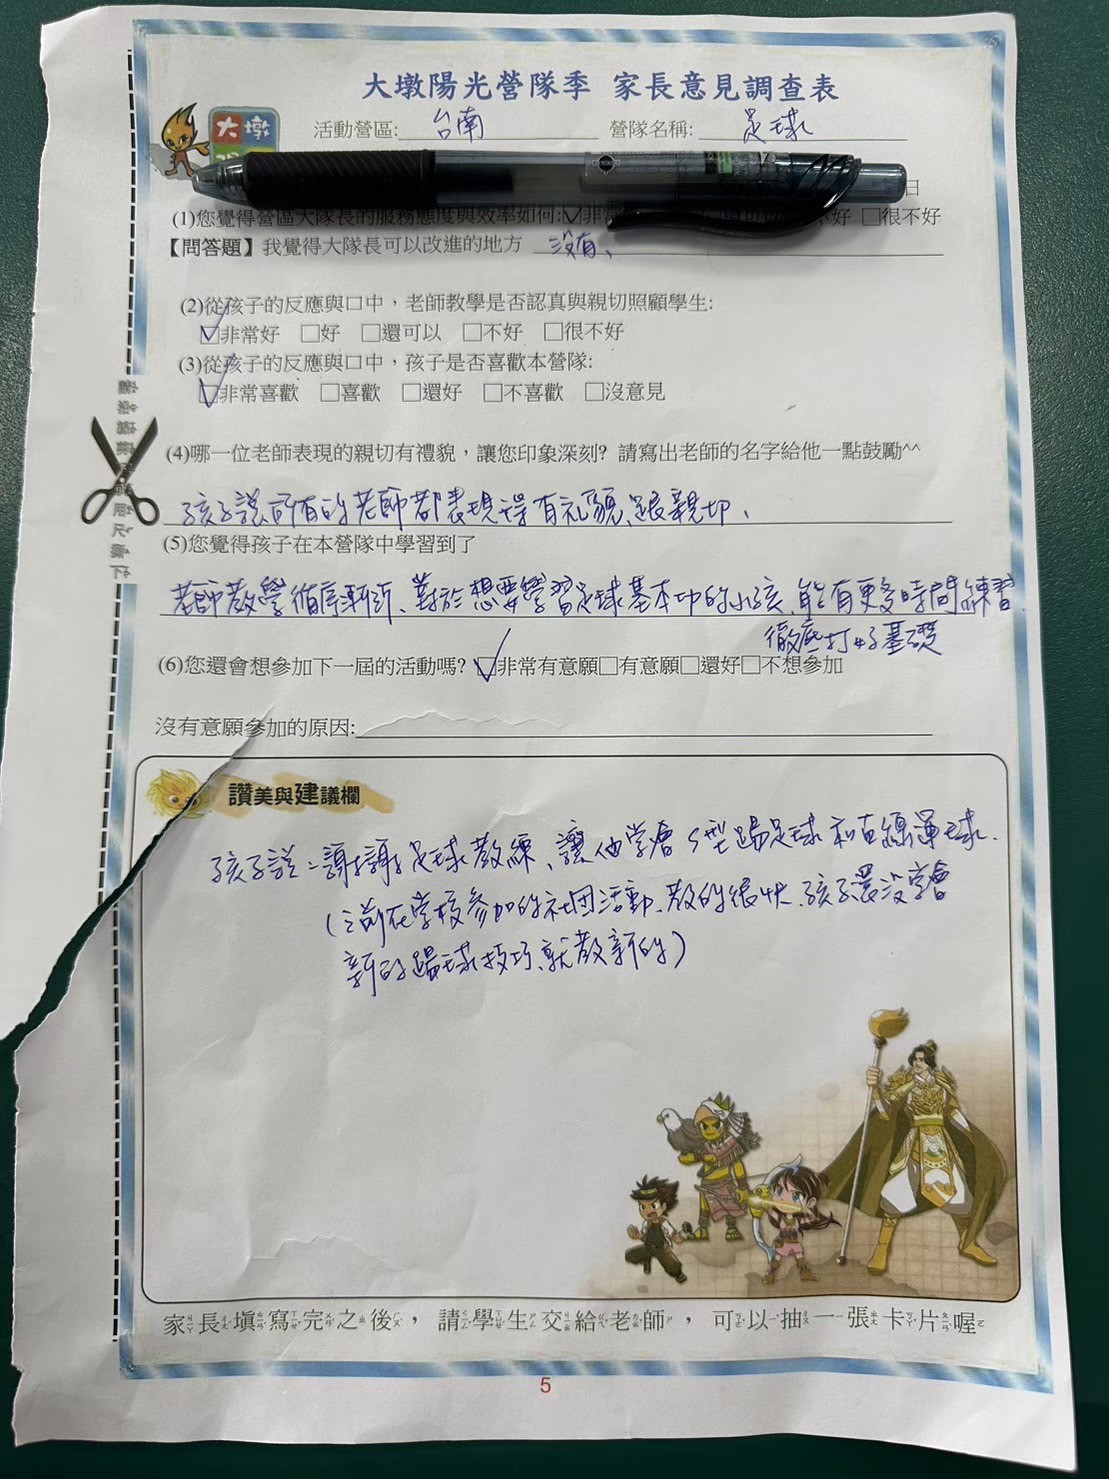 大墩陽光營隊季 家長意見調查表
大墩
活動營區: 台南 營隊名稱: 足球
日
(1)您覺得營區大隊長的服務態度與效率如何:☑非常 不好 □很不好
【問答題】我覺得大隊長可以改進的地方 沒有、
(2)從孩子的反應與口中，老師教學是否認真與親切照顧學生:
☑非常好 □好 □還可以 □不好 □很不好
(3)從孩子的反應與口中，孩子是否喜歡本營隊:
☑非常喜歡 □喜歡 □還好 □不喜歡 □沒意見
(4)哪一位老師表現的親切有禮貌，讓您印象深刻? 請寫出老師的名字給他一點鼓勵^^
孩子說所有的老師都表現得有礼貌、跟親切、
(5)您覺得孩子在本營隊中學習到了
老師教學循序漸近、對於想要學習足球基本功的小孩、能有更多時間練習
徹底打好基礎
(6)您還會想參加下一屆的活動嗎? ☑非常有意願□有意願□還好□不想參加
沒有意願參加的原因:
讚美與建議欄
孩子說:謝謝足球教練、讓他学會S型踢足球和直線運球.
(之前在学校參加的社团活動、教的很快、孩子還没学會
新的踢球技巧、就教新的)
家長填寫完之後，請學生交給老師，可以抽一張卡片喔
5